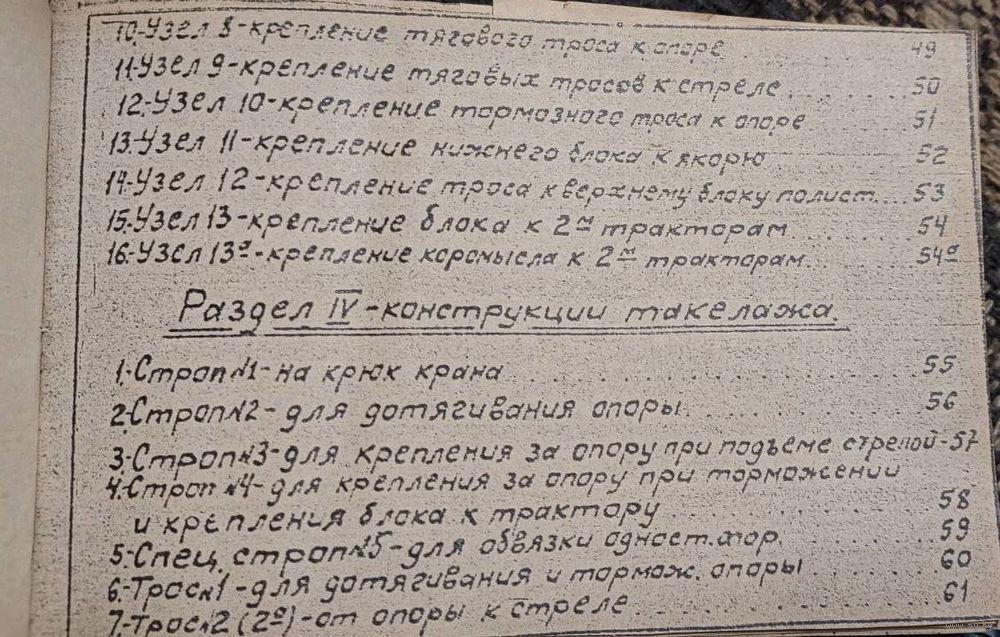 10.-Узел 8-крепление тягового троса к опоре 49
11-Узел 9-крепление тяговых тросов к стреле 50
12-Узел 10-крепление тормозного троса к опоре 51
13-Узел 11-крепление нижнего блока к якорю 52
14-Узел 12-крепление троса к верхнему блоку полист. 53
15.-Узел 13-крепление блока к 2м тракторам 54
16.-Узел 13а-крепление коромысла к 2м тракторам. 54а
Раздел IV-конструкции такелажа.
1.-Строп №1-на крюк крана 55
2.-Строп №2-для дотягивания опоры 56
3.-Строп №3-для крепления за опору при подъеме стрелой-57
4.-Строп №4-для крепления за опору при торможении
и крепления блока к трактору 58
5.-Спец. строп №5-для обвязки одност. опор. 59
6.-Трос №1-для дотягивания и тормож. опоры 60
7.-Трос №2 (2а)-от опоры к стреле 61